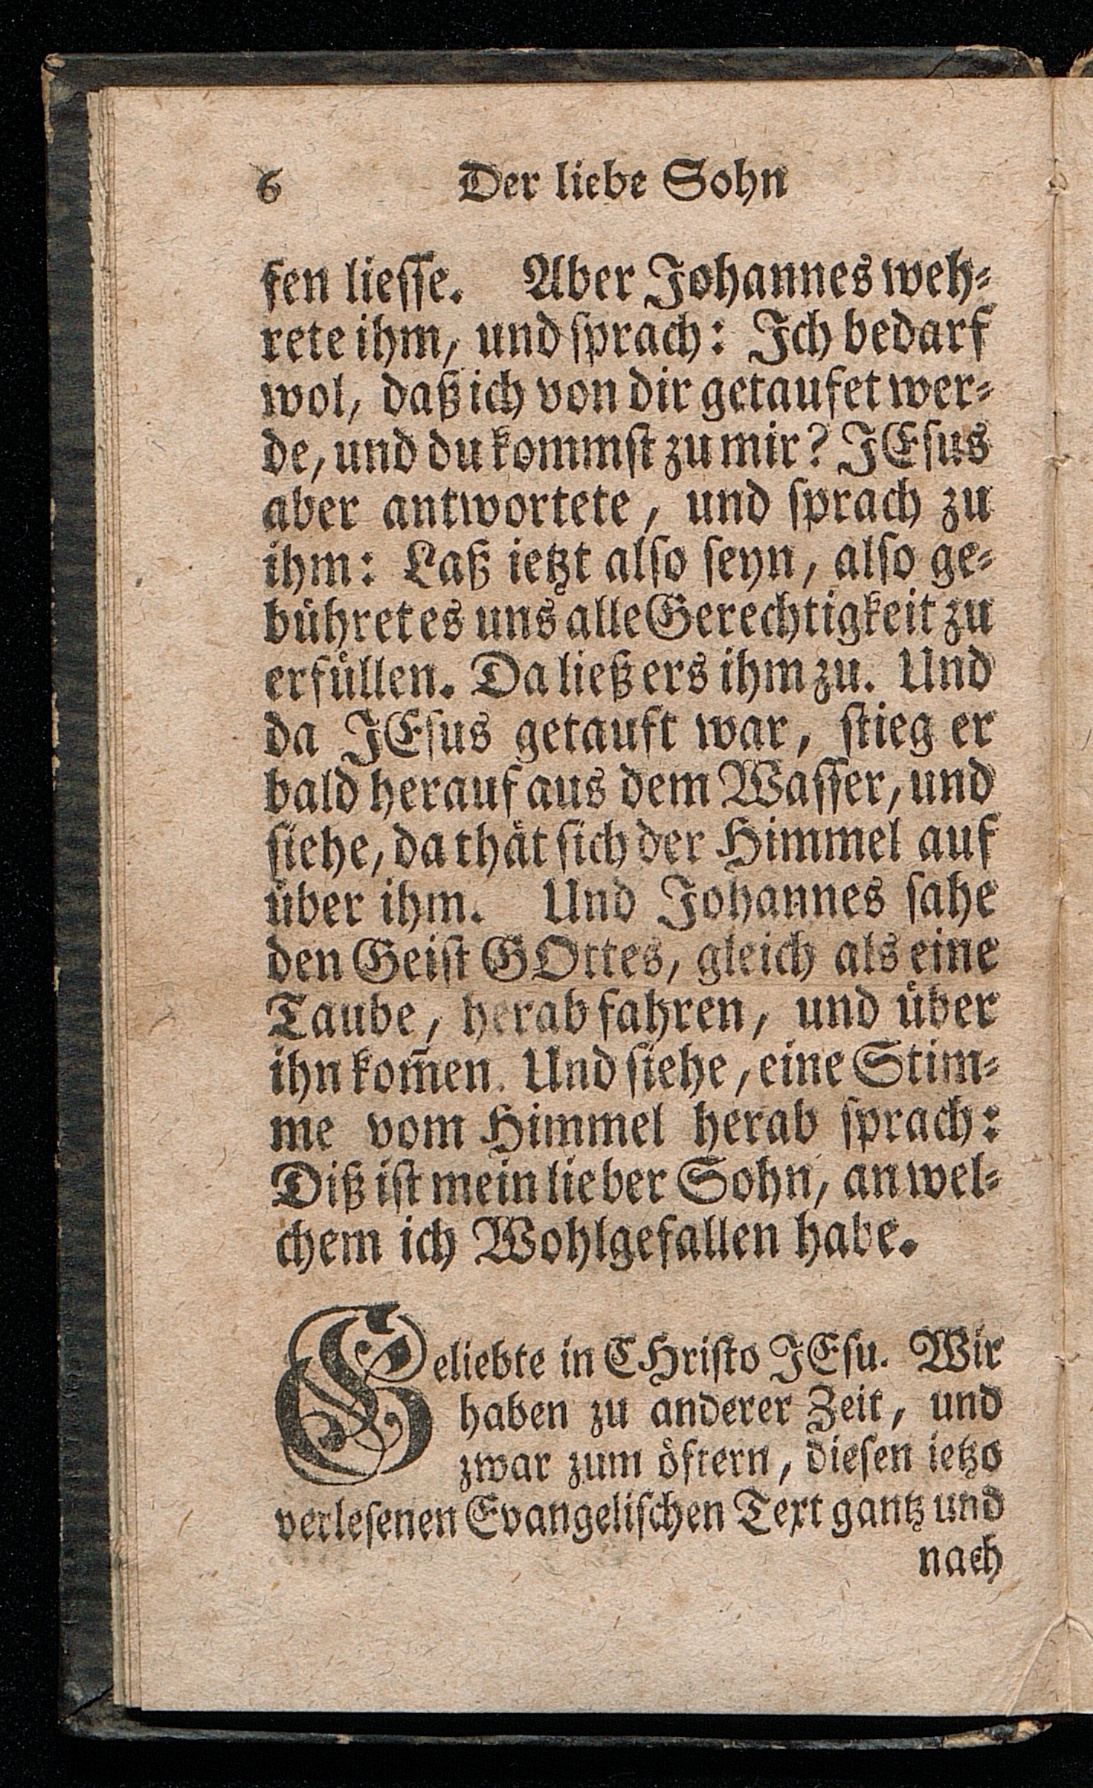 6 Der liebe Sohn
fen liesse. Aber Johannes weh-
rete ihm, und sprach: Ich bedarf
wol, daß ich von dir getaufet wer-
de, und du kommst zu mir? JEsus
aber antwortete, und sprach zu
ihm: Laß ietzt also seyn, also ge-
bühret es uns alle Gerechtigkeit zu
erfüllen. Da ließ ers ihm zu. Und
da JEsus getauft war, stieg er
bald herauf aus dem Wasser, und
siehe, da thät sich der Himmel auf
über ihm. Und Johannes sahe
den Geist GOttes, gleich als eine
Taube, herab fahren, und über
ihn kom̄en. Und siehe, eine Stim-
me vom Himmel herab sprach:
Diß ist mein lieber Sohn, an wel-
chem ich Wohlgefallen habe.
Geliebte in CHristo JEsu. Wir
haben zu anderer Zeit, und
zwar zum öftern, diesen ietzo
verlesenen Evangelischen Text gantz und
nach